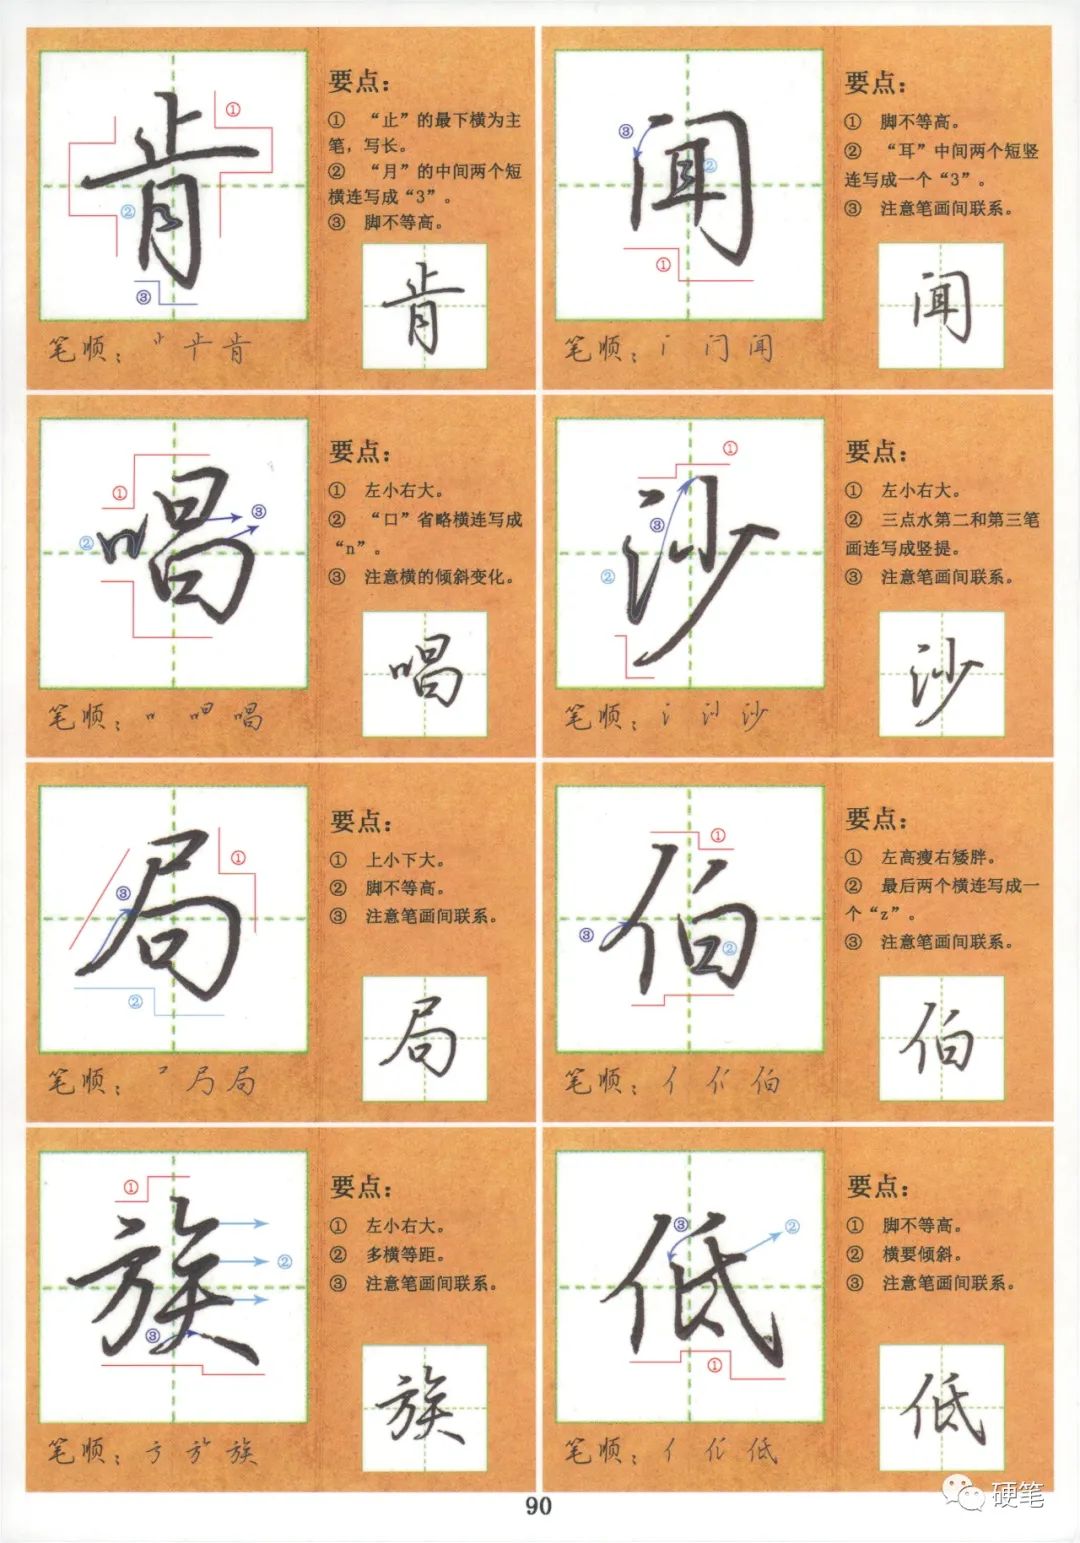 肯
①
②
③
要点：
① “止”的最下横为主
笔，写长。
② “月”的中间两个短
横连写成“3”。
③ 脚不等高。
肯
笔顺：
肯
闻
③
②
①
要点：
① 脚不等高。
② “耳”中间两个短竖
连写成一个“3”。
③ 注意笔画间联系。
闻
笔顺： 门 闻
唱
①
②
③
要点：
① 左小右大。
② “口”省略横连写成
“n”。
③ 注意横的倾斜变化。
唱
笔顺： 唱
沙
①
③
②
要点：
① 左小右大。
② 三点水第二和第三笔
画连写成竖提。
③ 注意笔画间联系。
沙
笔顺： 氵 沙
局
①
③
②
要点：
① 上小下大。
② 脚不等高。
③ 注意笔画间联系。
局
笔顺： 局
伯
①
③
②
要点：
① 左高瘦右矮胖。
② 最后两个横连写成一
个“z”。
③ 注意笔画间联系。
伯
笔顺： 亻 伯
族
①
②
③
要点：
① 左小右大。
② 多横等距。
③ 注意笔画间联系。
族
笔顺： 族
低
③
②
①
要点：
① 脚不等高。
② 横要倾斜。
③ 注意笔画间联系。
低
笔顺： 亻 低
90
硬笔